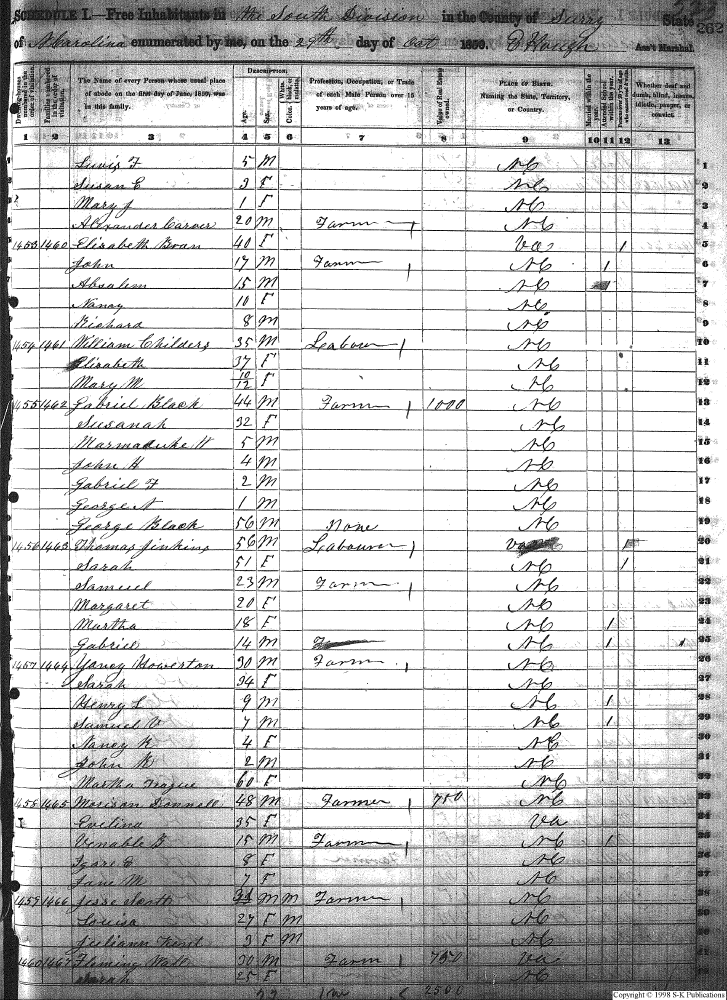 SCHEDULE I.—Free Inhabitants in the South Division in the County of Surry State
262
of N Carolina enumerated by me, on the 29th day of Oct 1850. Ass't Marshal.
Dwelling-houses numbered in the order of visitation.
Families numbered in the order of visitation.
The Name of every Person whose usual place of abode on the first day of June, 1850, was in this family.
Description.
Age.
Sex.
Color, White, black, or mulatto.
Profession, Occupation, or Trade of each Male Person over 15 years of age.
Value of Real Estate owned.
Place of Birth, Naming the State, Territory, or Country.
Married within the year.
Attended School within the year.
Whether deaf and dumb, blind, insane, idiotic, pauper, or convict.
1 2 3 4 5 6 7 8 9 10 11 12 13
1 Lewis F 5 M NC 1
Susan E 3 F NC 2
Mary J 1 F NC 3
Alexander Carver 20 M Farm NC 4
1453 1460 Elizabeth 40 F Va 1 5
John 17 M Farm NC 1 6
Absalem 15 M NC 7
Nancy 10 F NC 8
Richard 8 M NC 9
1454 1461 William Childers 35 M Labourer NC 10
Elizabeth 37 F NC 11
Mary M 10/12 F NC 12
1455 1462 Gabriel Black 44 M Farm 1000 NC 13
Susanah 32 F NC 14
Marmaduke W 5 M NC 15
John H 4 M NC 16
Gabriel F 2 M NC 17
George A 1 M NC 18
George Black 56 M None NC 19
1456 1463 Thomas Jenkins 56 M Labourer 20
Sarah 51 F NC 1 21
Samuel 23 M Farm NC 22
Margaret 20 F NC 23
Martha 18 F NC 1 24
Gabriel 14 M NC 1 25
1457 1464 Yancy Howerton 30 M Farm NC 26
Sarah 34 F NC 27
Henry L 9 M NC 1 28
Samuel V 7 M NC 1 29
Nancy K 4 F NC 30
John K 2 M NC 31
Martha 60 F NC 32
1458 1465 Morison Donnell 48 M Farmer 750 NC 33
Evelina 35 F Va 34
Venable B 15 M Farm NC 1 35
8 F NC 36
Jane M 7 F NC 37
1459 1466 Jesse North M M Farm NC 38
Louisa 27 F M NC 39
Juliann 3 F M NC 40
1460 1467 Fleming Wall 30 M Farm 750 Va 41
Sarah 25 F NC
2500
Copyright © 1998 S-K Publications